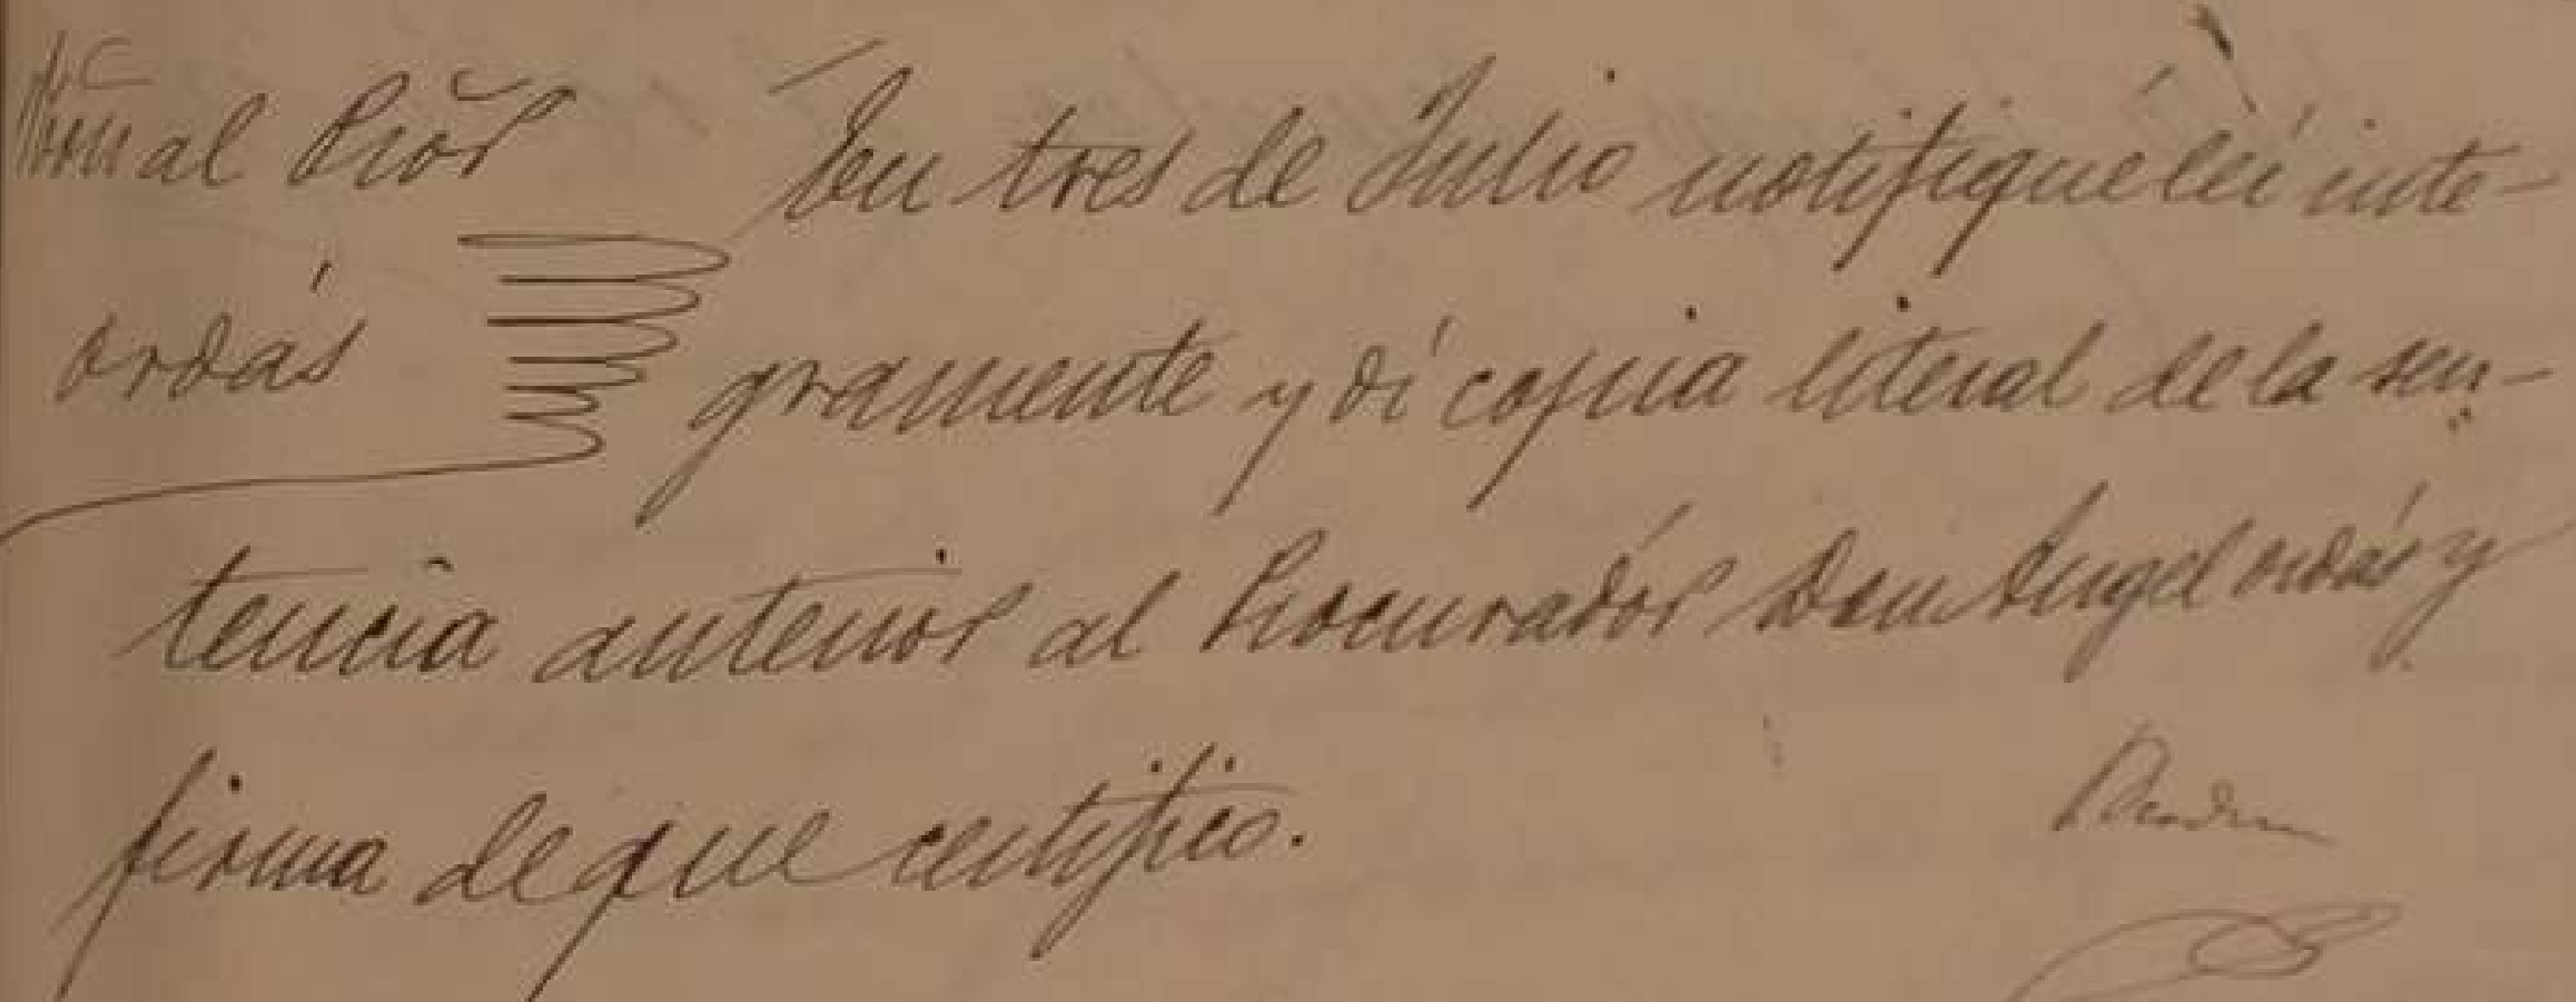 al Pror
ordás
En tres de Julio notifiqué leí inte-
gramente y dí copia literal de la sen-
tencia anterior al Procurador Don Angel ordás y
firma de que certifico.